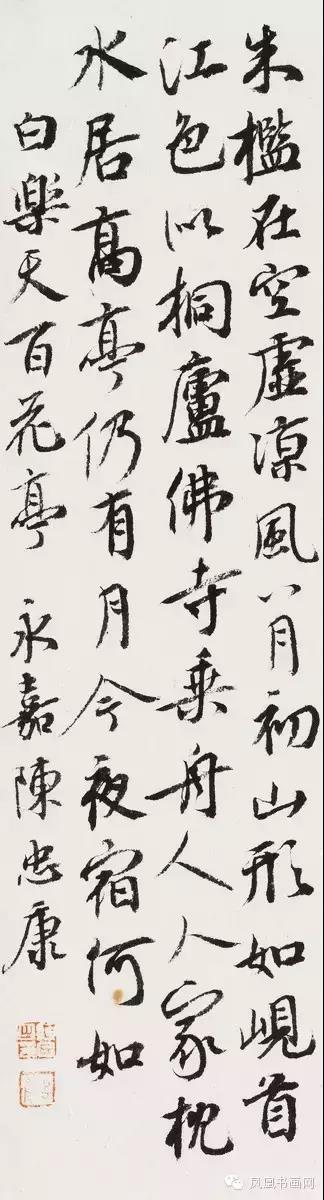 朱檻在空虛涼風八月初山形如峴首
江色似桐廬佛寺乘舟入人家枕
水居高亭仍有月今夜宿何如
白樂天百花亭 永嘉陳忠康
凤凰书画网